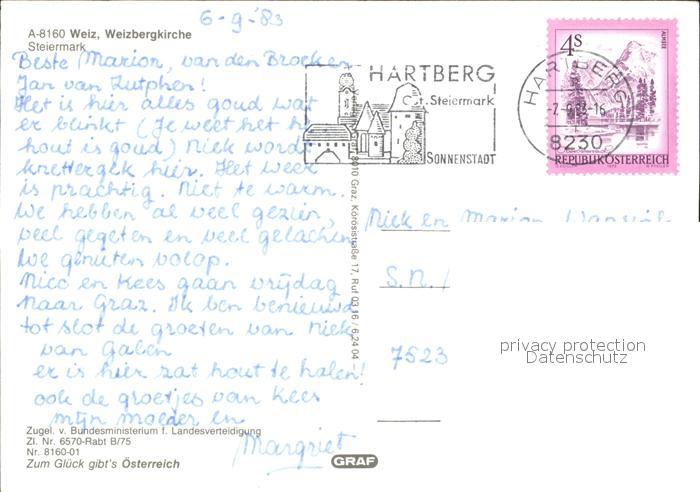 6-9-'83
A-8160 Weiz, Weizbergkirche
Steiermark
Beste Marion, van den Broeken
Jan van Zutphen!
Het is hier alles goud wat
er blinkt (Je weet het h
hout is goud) Niek word
knettergek hier. Het weer
is prachtig. Niet te warm.
We hebben al veel gezien,
veel gegeten en veel gelachen
We genieten volop.
Nico en Kees gaan vrijdag
naar Graz. Ik ben benieuwd
tot slot de groeten van Niek
van Galen
er is hier zat hout te halen!
ook de groetjes van Kees
mijn moeder en
Margriet
Zugel. v. Bundesministerium f. Landesverteidigung
Zl. Nr. 6570-Rabt B/75
Nr. 8160-01
Zum Glück gibt's Österreich
GRAF
8010 Graz, Körösistraße 17, Ruf 03 16 / 6 24 04
HARTBERG
Steiermark
SONNENSTADT
HARTBERG
8230
4s
ALMSEE
REPUBLIK ÖSTERREICH
Niek en Marion
S.N.
7523
privacy protection
Datenschutz